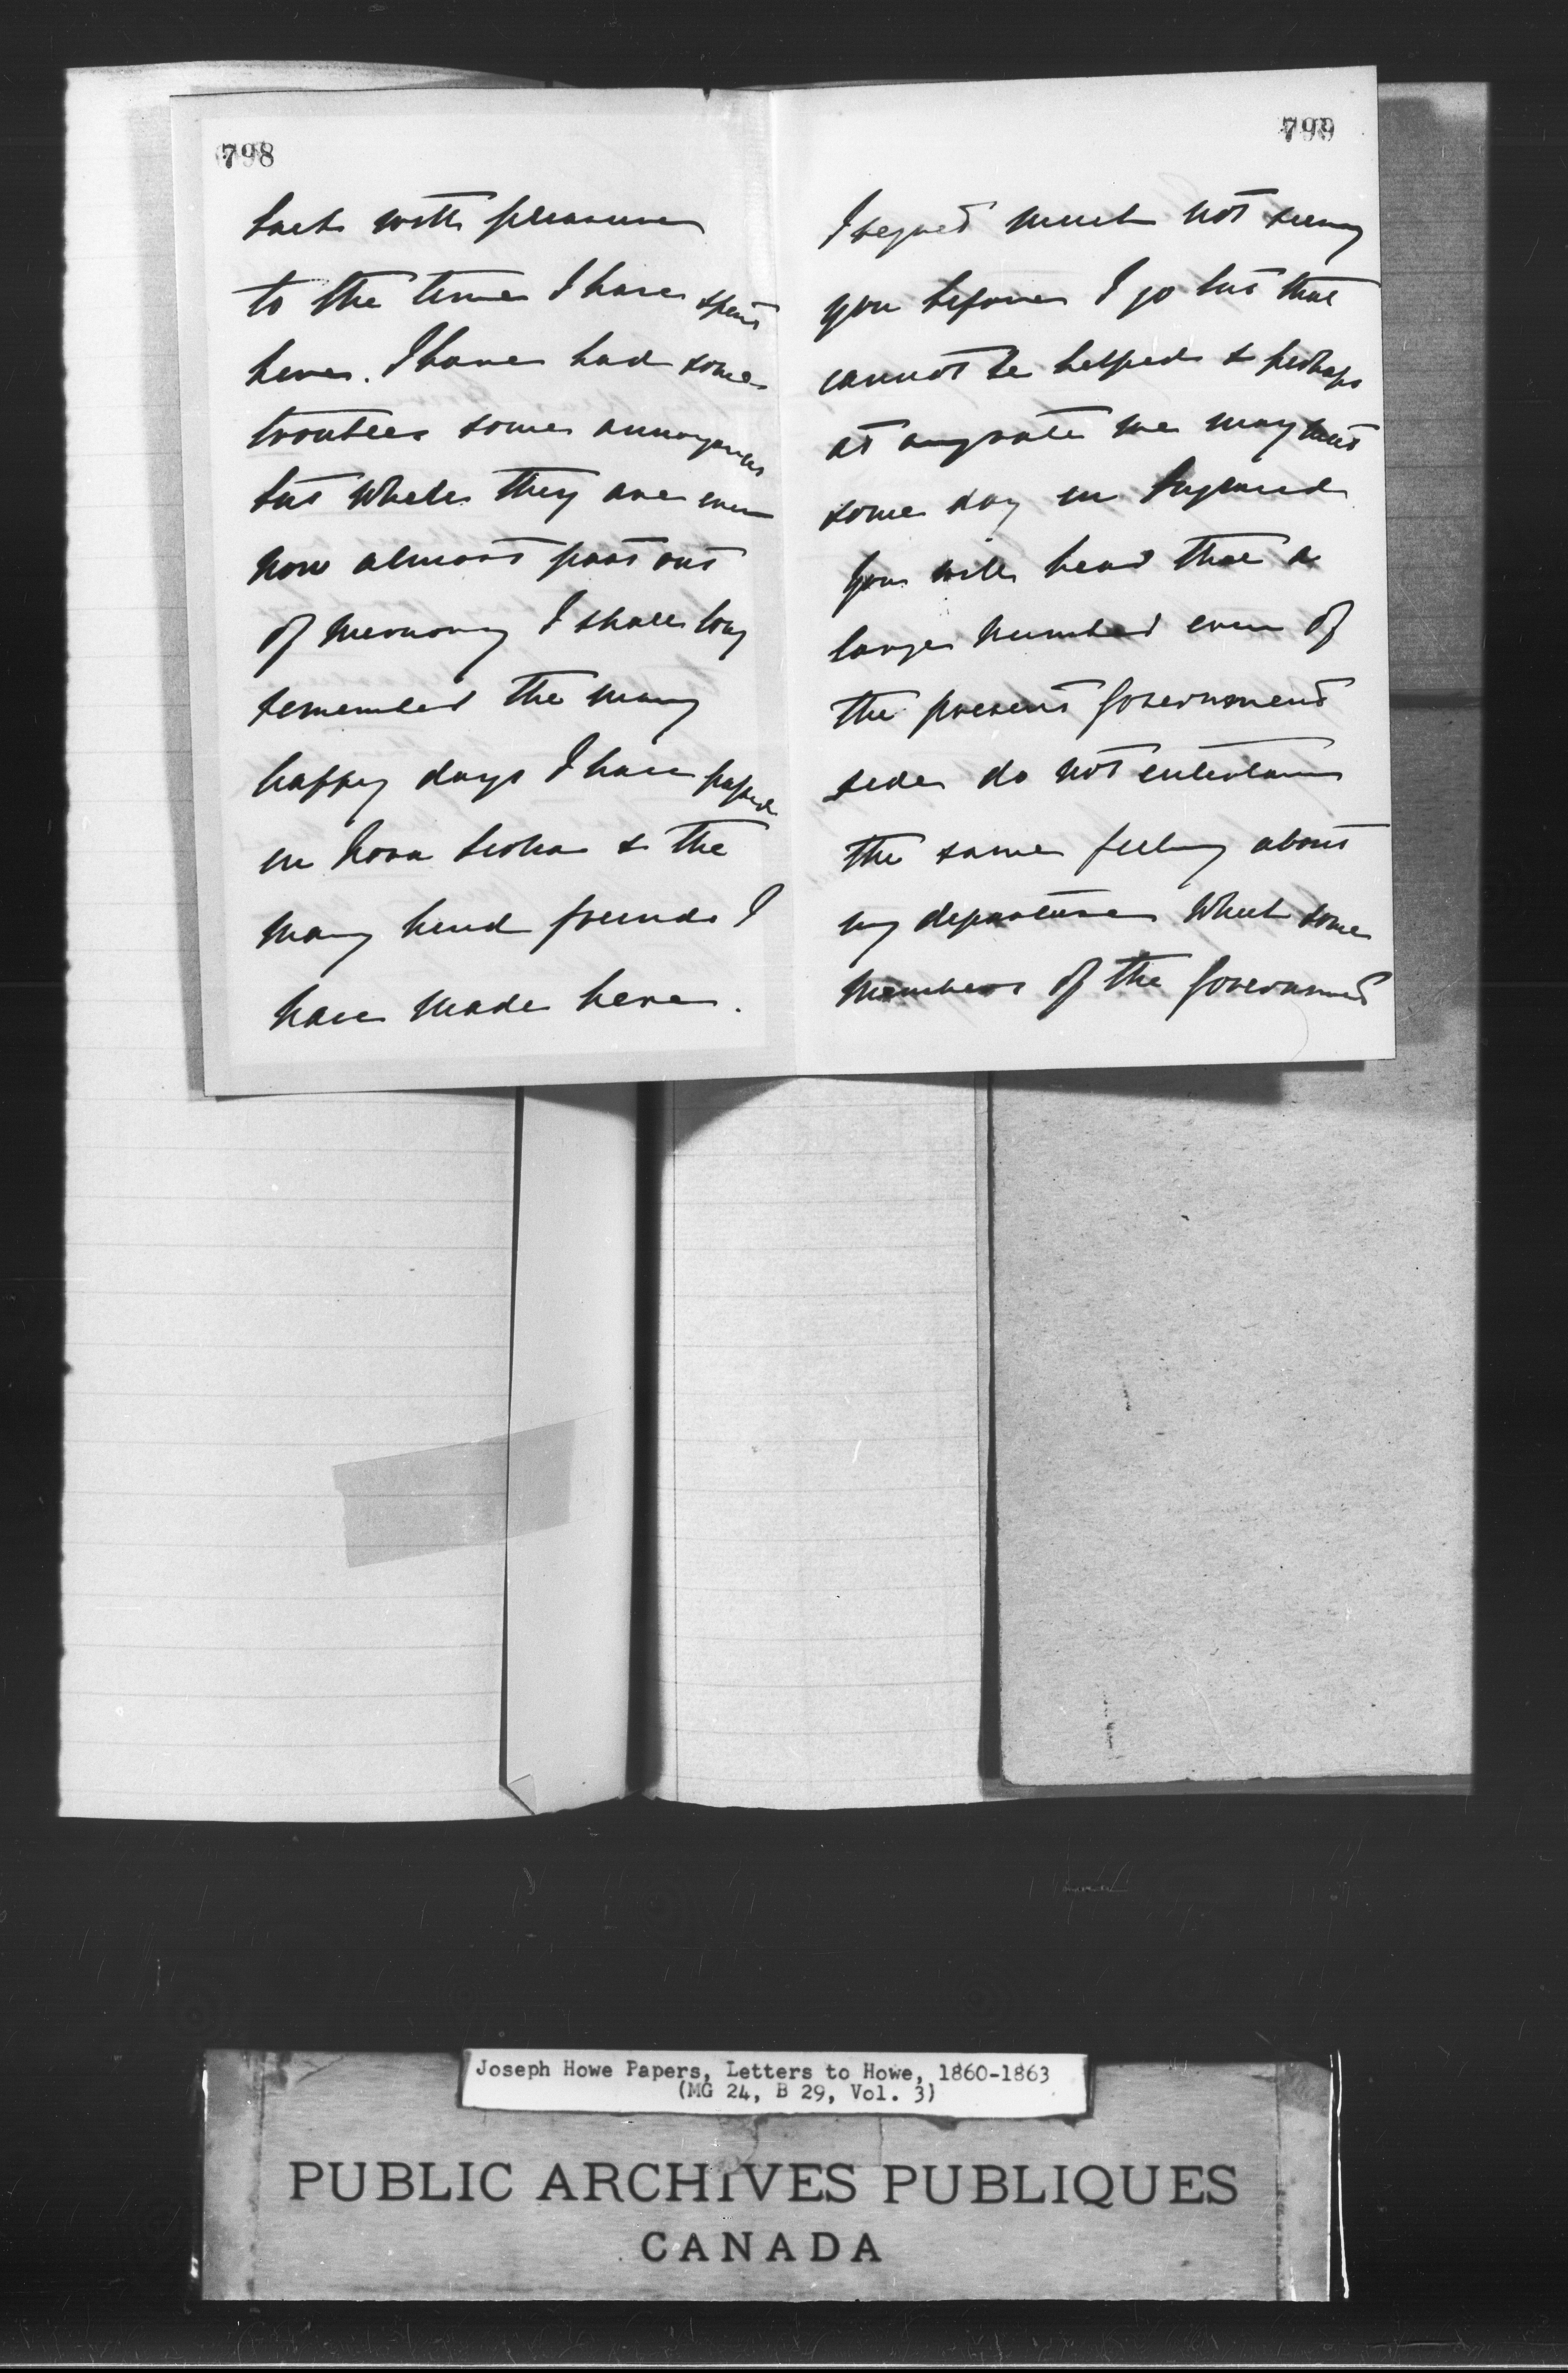 798
back with pleasure
to the time I have spent
here. I have had some
troubles some annoyances
but while they are even
now almost past out
of memory I shall long
remember the many
happy days I have passed
in Nova Scotia & the
many kind friends I
have made here.
799
I regret much not seeing
you before I go but that
cannot be helped & perhaps
at any rate we may meet
some day in England
You will hear that a
large number even of
the present Government
side do not entertain
the same feeling about
my departure which some
members of the Government
Joseph Howe Papers, Letters to Howe, 1860-1863
(MG 24, B 29, Vol. 3)
PUBLIC ARCHIVES PUBLIQUES
CANADA